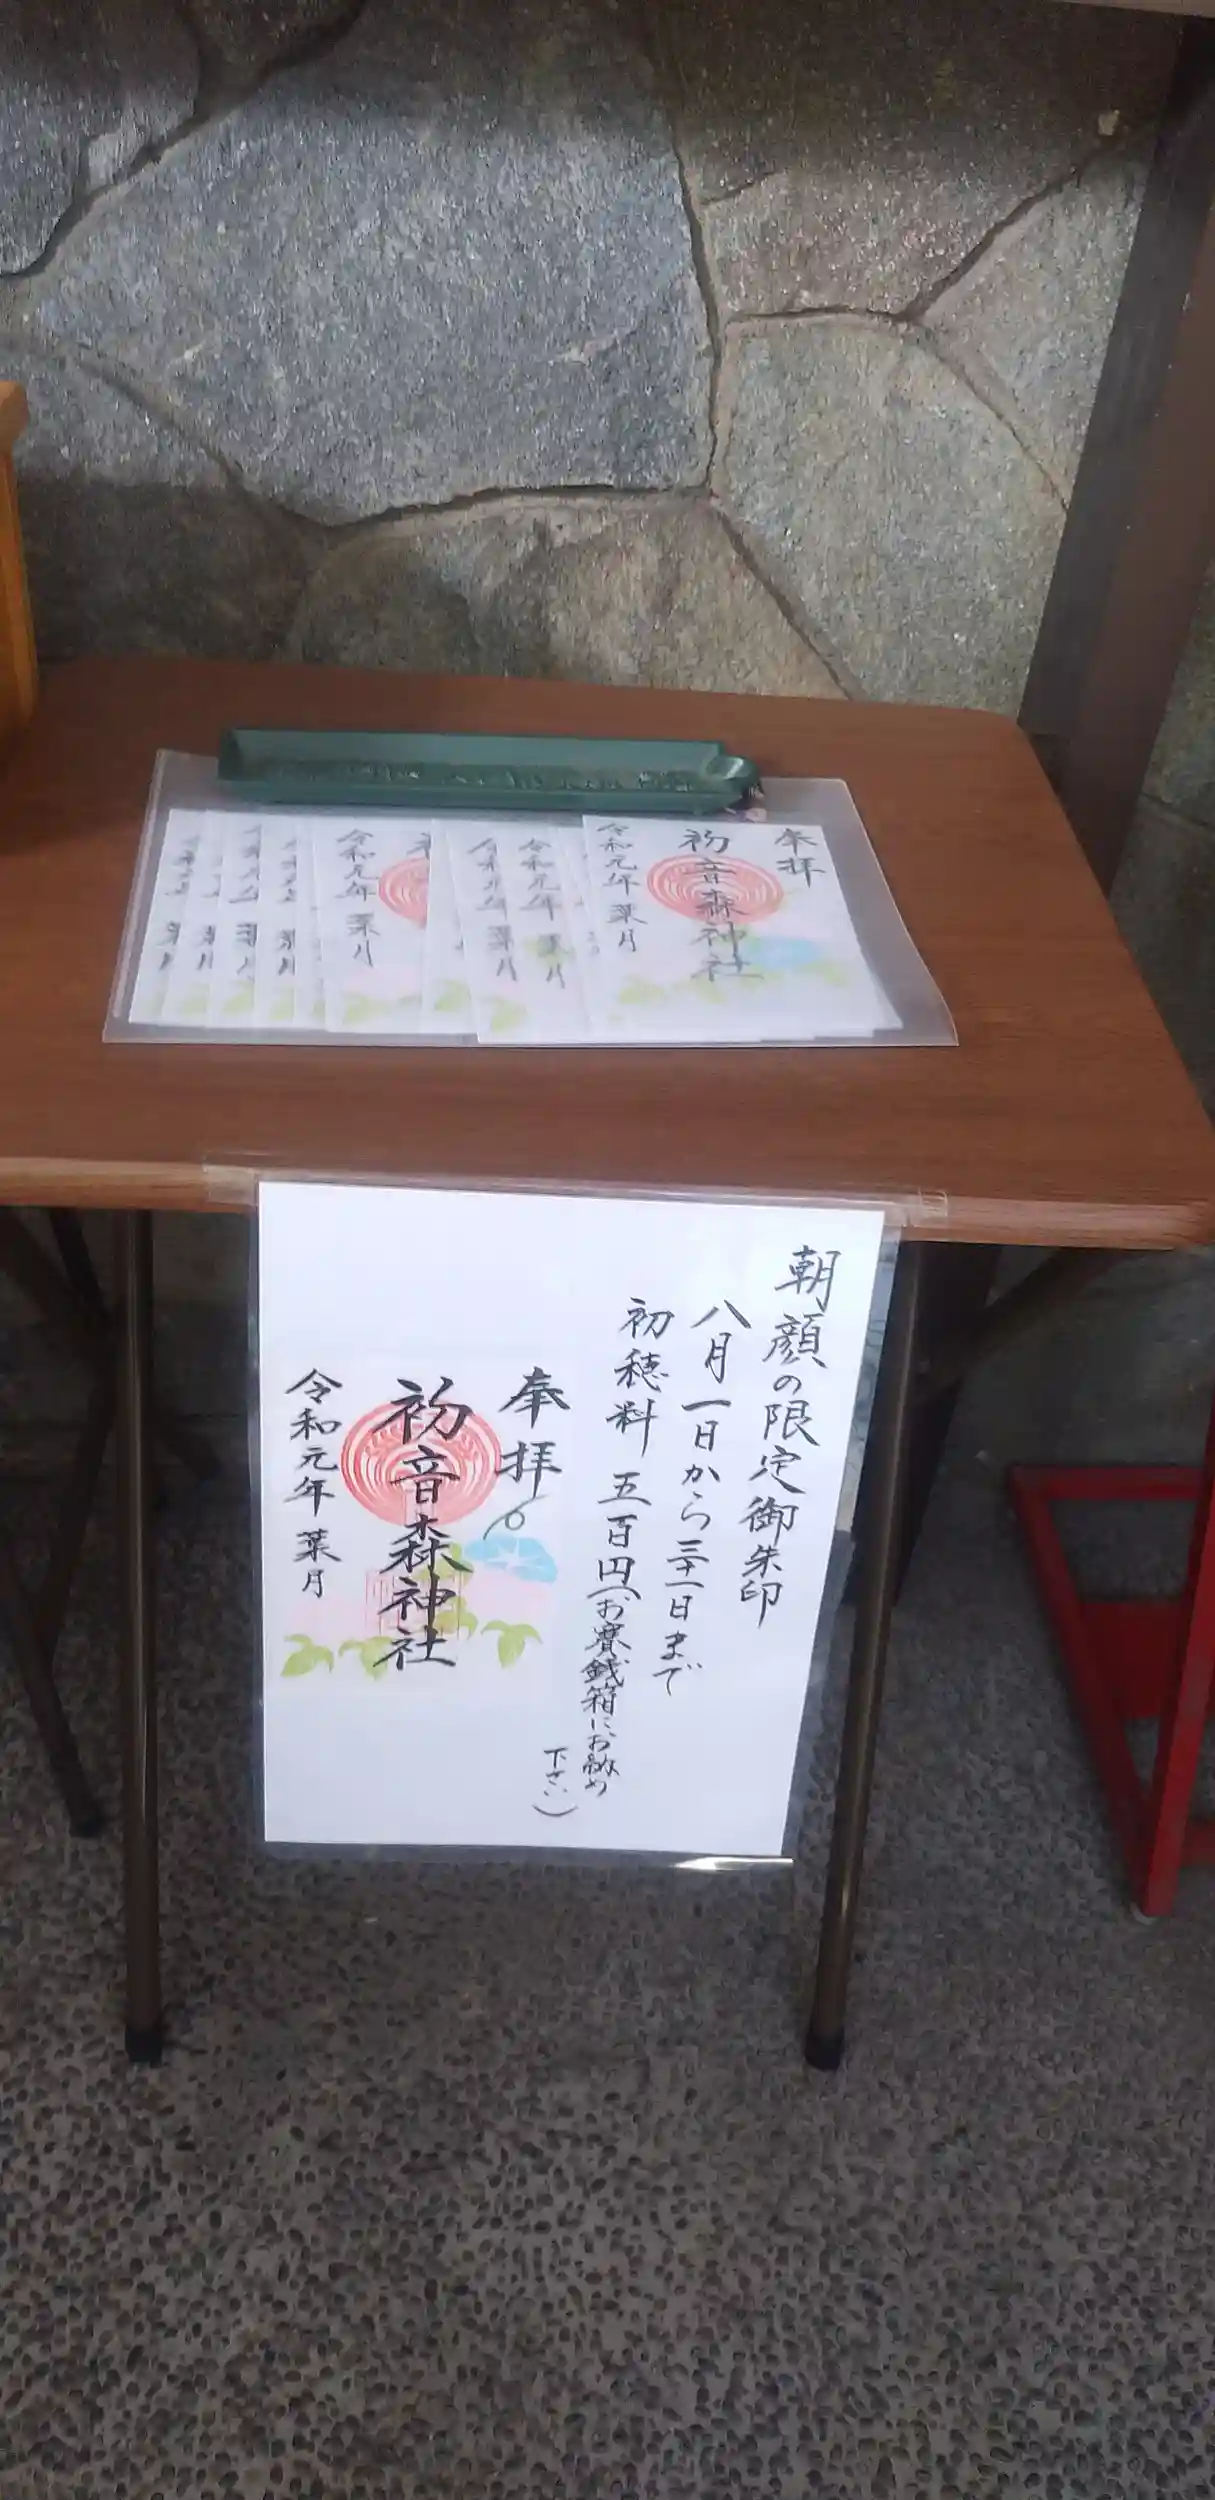 奉拝
初音森神社
令和元年 葉月
令和元年 葉月
令和元年 葉月
令和元年 葉月
朝顔の限定御朱印
八月一日から三十一日まで
初穂料 五百円(お賽銭箱にお納め
下さい)
奉拝
初音森神社
令和元年 葉月